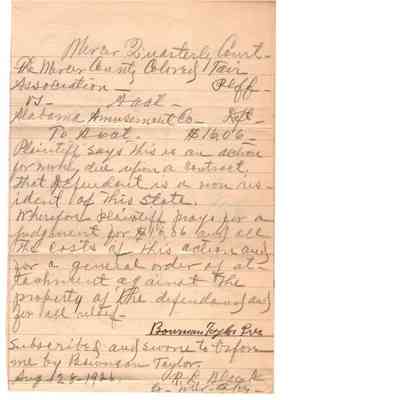 Mercer Quarterly Court -
The Mercer County Colored Fair
Association - Plff -
vs -
Alabama Amusement Co - Deft -
To $16.06 -
Plaintiff says this is an action
for money due upon a contract,
that defendant is a non res-
ident of this state.
Wherefore plaintiff prays for a
judgment for $16.06 and all
the costs of this action and
for a general order of at-
tachment against the
property of the defendant and
for all relief -
Bowman Taylor Pres
Subscribed and sworne to before
me by Bowman Taylor.
Aug 28 - 192